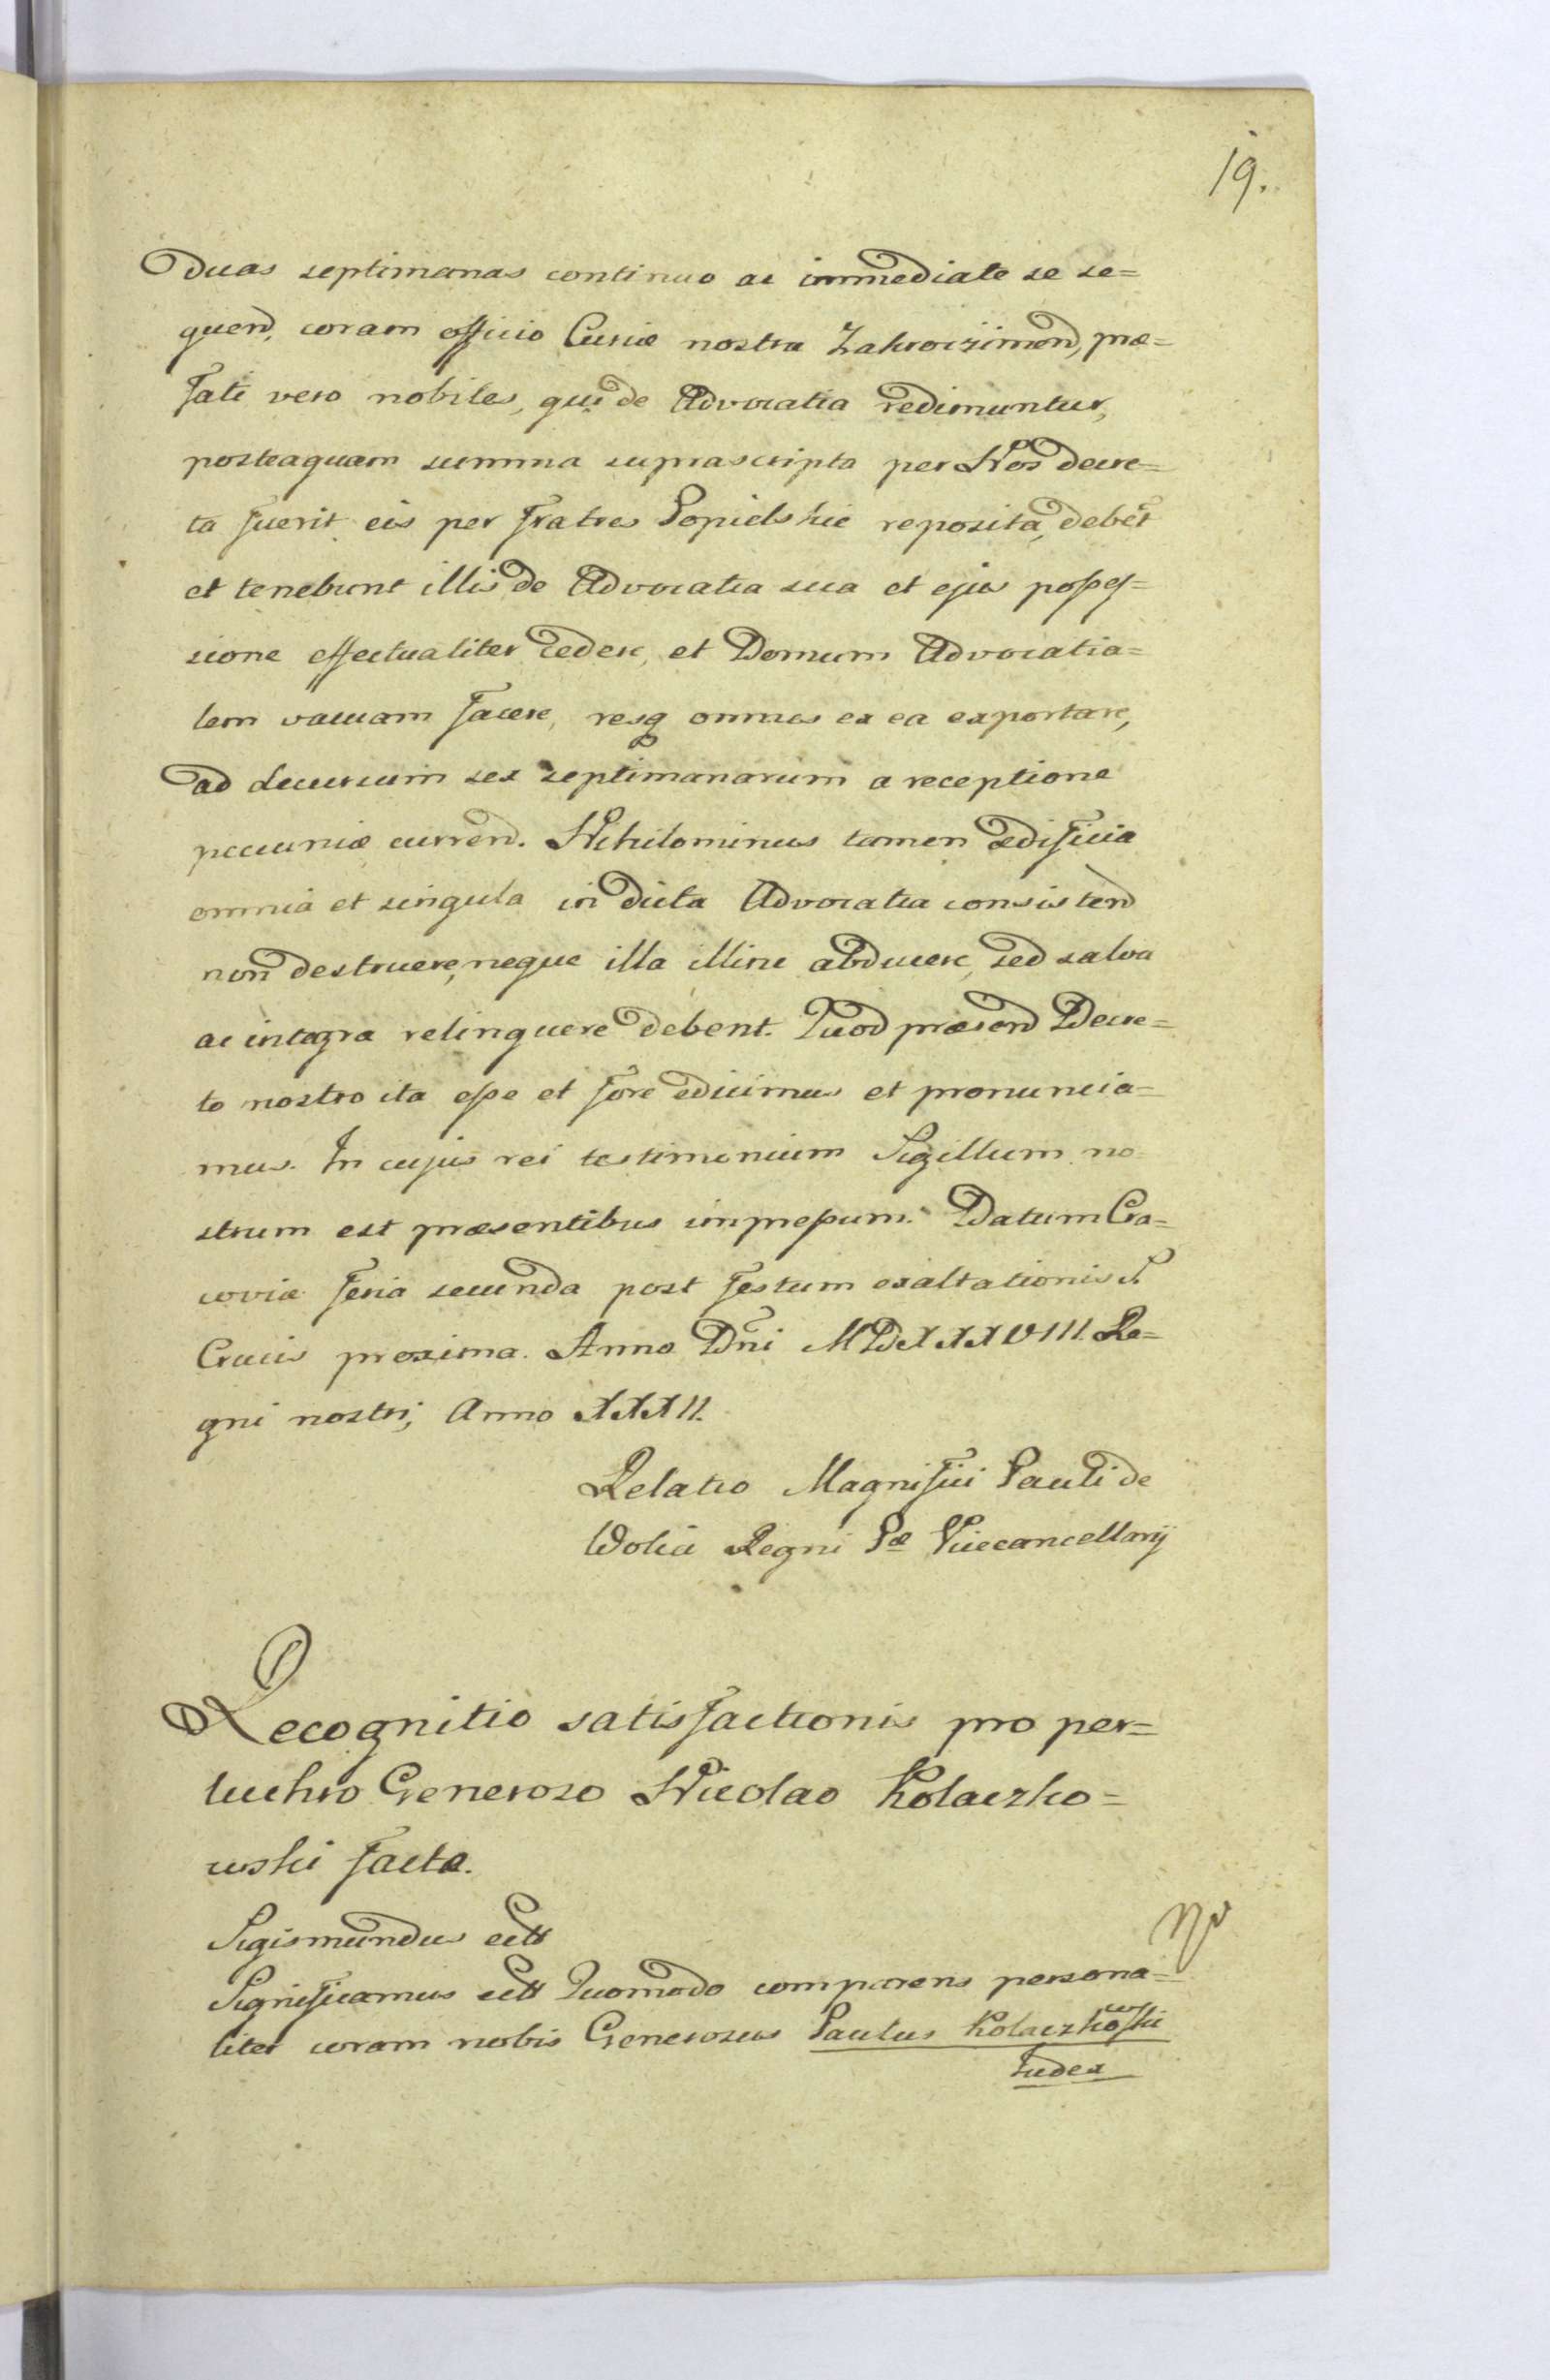 19.
Duas septimanas continuo ac immediate se se=
quend, coram officio Curiæ nostra Zakroczimen, præ=
fati vero nobiles, qui de Advocatia redimuntur,
posteaquam summa suprascripta per Nos decre=
ta fuerit eis per fratres Popielskie reposita, debēt
et tenebunt illis de Advocatia sua et ejus posses=
sione effectualiter cedere, et Domum Advocatia=
lem vacuam facere, resq omnes ex ea exportare,
ad decursum sex septimanarum a receptione
pecuniæ currend. Nihilominus tamen ædificia
omnia et singula in dicta Advocatia consistend
non destruere, neque illa illinc abducere, sed salva
ac integra relinquere debent. Quod præsend Decre=
to nostro ita esse et fore edicimus et pronuncia=
mus. In cujus rei testimonium Sigillum no=
strum est præsentibus impressum. Datum Cra=
coviæ feria secunda post festum exaltationis S.
Crucis proxima. Anno Dni MDXXXVIII. Re=
gni nostri, Anno XXXII.
Relatio Magnifici Pauli de
Wolia Regni Pæ Vicecancellarij
Recognitio satisfactionis pro per=
luchro Generoso Nicolao Kolaczko=
wski facta.
Sigismundus ectt
Significamus ectt Quomodo comparens persona=
liter coram nobis Generosus Paulus Kolaczkowski
Judex